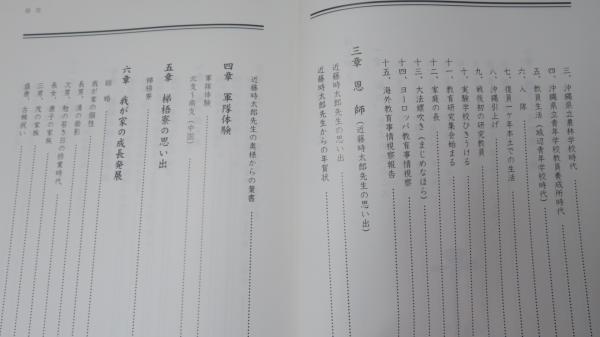 三、沖縄県立農林学校時代
四、沖縄県立青年学校教員養成所時代
五、教員生活(城辺青年学校時代)
六、入隊
七、復員一ケ年本土での生活
八、沖縄引上げ
九、戦後初の研究教員
十、実験学校ひきうける
十一、教育研究集会始まる
十二、家庭の長
十三、大法螺吹き(まじめなほら)
十四、ヨーロッパ教育事情視察
十五、海外教育事情視察報告
三章 恩師(近藤時太郎先生の思い出)
近藤時太郎先生の思い出
近藤時太郎先生からの年賀状
近藤時太郎先生の奥様からの葉書
四章 軍隊体験
軍隊体験
北支〜南支(中国)
五章 梯梧寮の思い出
梯梧寮
六章 我が家の成長発展
結婚
我が家の個性
長男、
次男、勉の若き日の修業時代
長女、康子の家族
三男、茂の家族
盛慶、古稀祝い